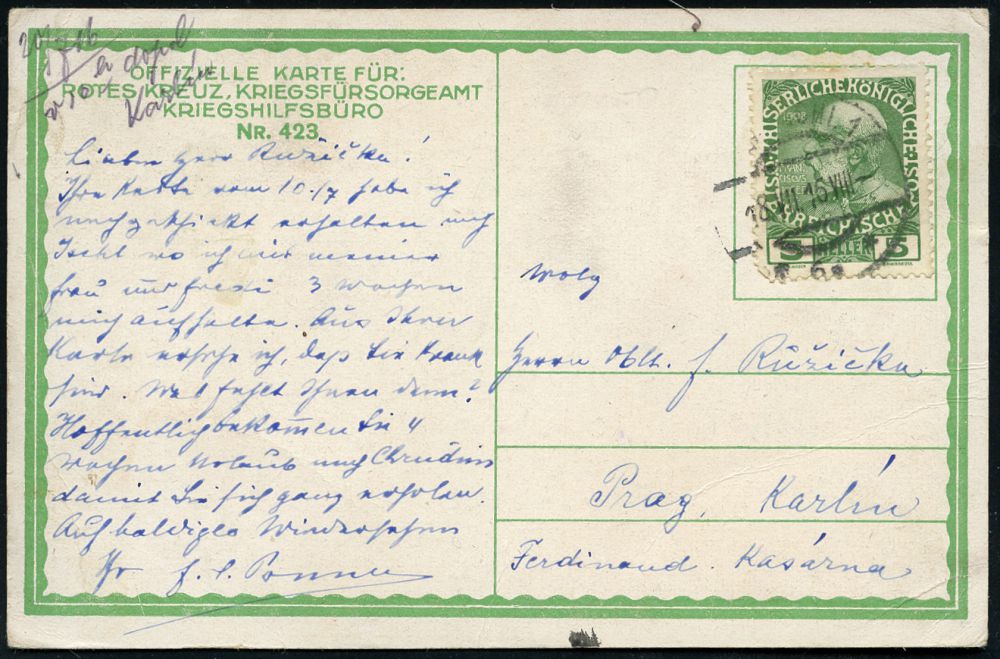 OFFIZIELLE KARTE FÜR:
ROTES KREUZ, KRIEGSFÜRSORGEAMT
KRIEGSHILFSBÜRO
NR. 423
Lieber Herr Růžička!
Ihre Karte vom 10./7 habe ich
nachgeschickt erhalten nach
Ischl wo ich mit meiner
Frau und Fredi 3 Wochen
mich aufhalte. Aus Ihrer
Karte ersehe ich, daß Sie krank
sind. Was fehlt Ihnen denn?
Hoffentlich bekommen Sie 4
Wochen Urlaub nach Chrudim
damit Sie sich ganz erholen.
Auf baldiges Wiedersehen
Ihr
KAISERLICHE KÖNIGLICHE
ÖSTERREICHISCHE
1908
5 HELLER 5
18.VII.16
Herrn Oblt. F. Růžička
Prag, Karlín
Ferdinand. Kasárna